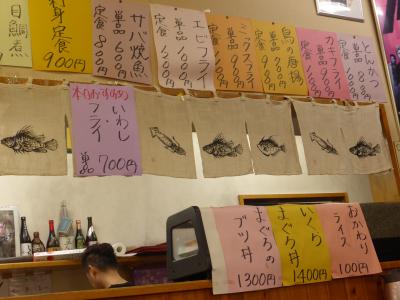 とんかつ
単品
定食
カキフライ
単品
定食
鳥の唐揚
単品
定食
ミックスフライ
単品
定食
エビフライ
単品
定食
サバ焼魚
単品 600円
定食 800円
刺身定食
900円
目鯛煮
本日のおすすめ
いわし
フライ
単品 700円
おかわり
ライス
100円
いくら
まぐろ丼
1400円
まぐろの
ブツ丼
1300円